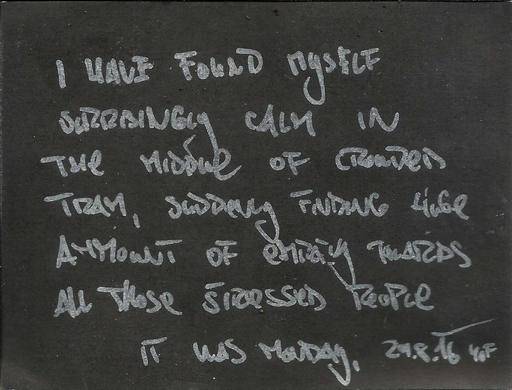 I HAVE FOUND MYSELF
SURRBINGLY CALM IN
THE MIDDLE OF CROWDED
TRAM, SUDDENLY FINDING HUGE
AMMOUNT OF EMPATY TOWARDS
ALL THOSE STRESSED PEOPLE
IT WAS MONDAY. 29.8.16